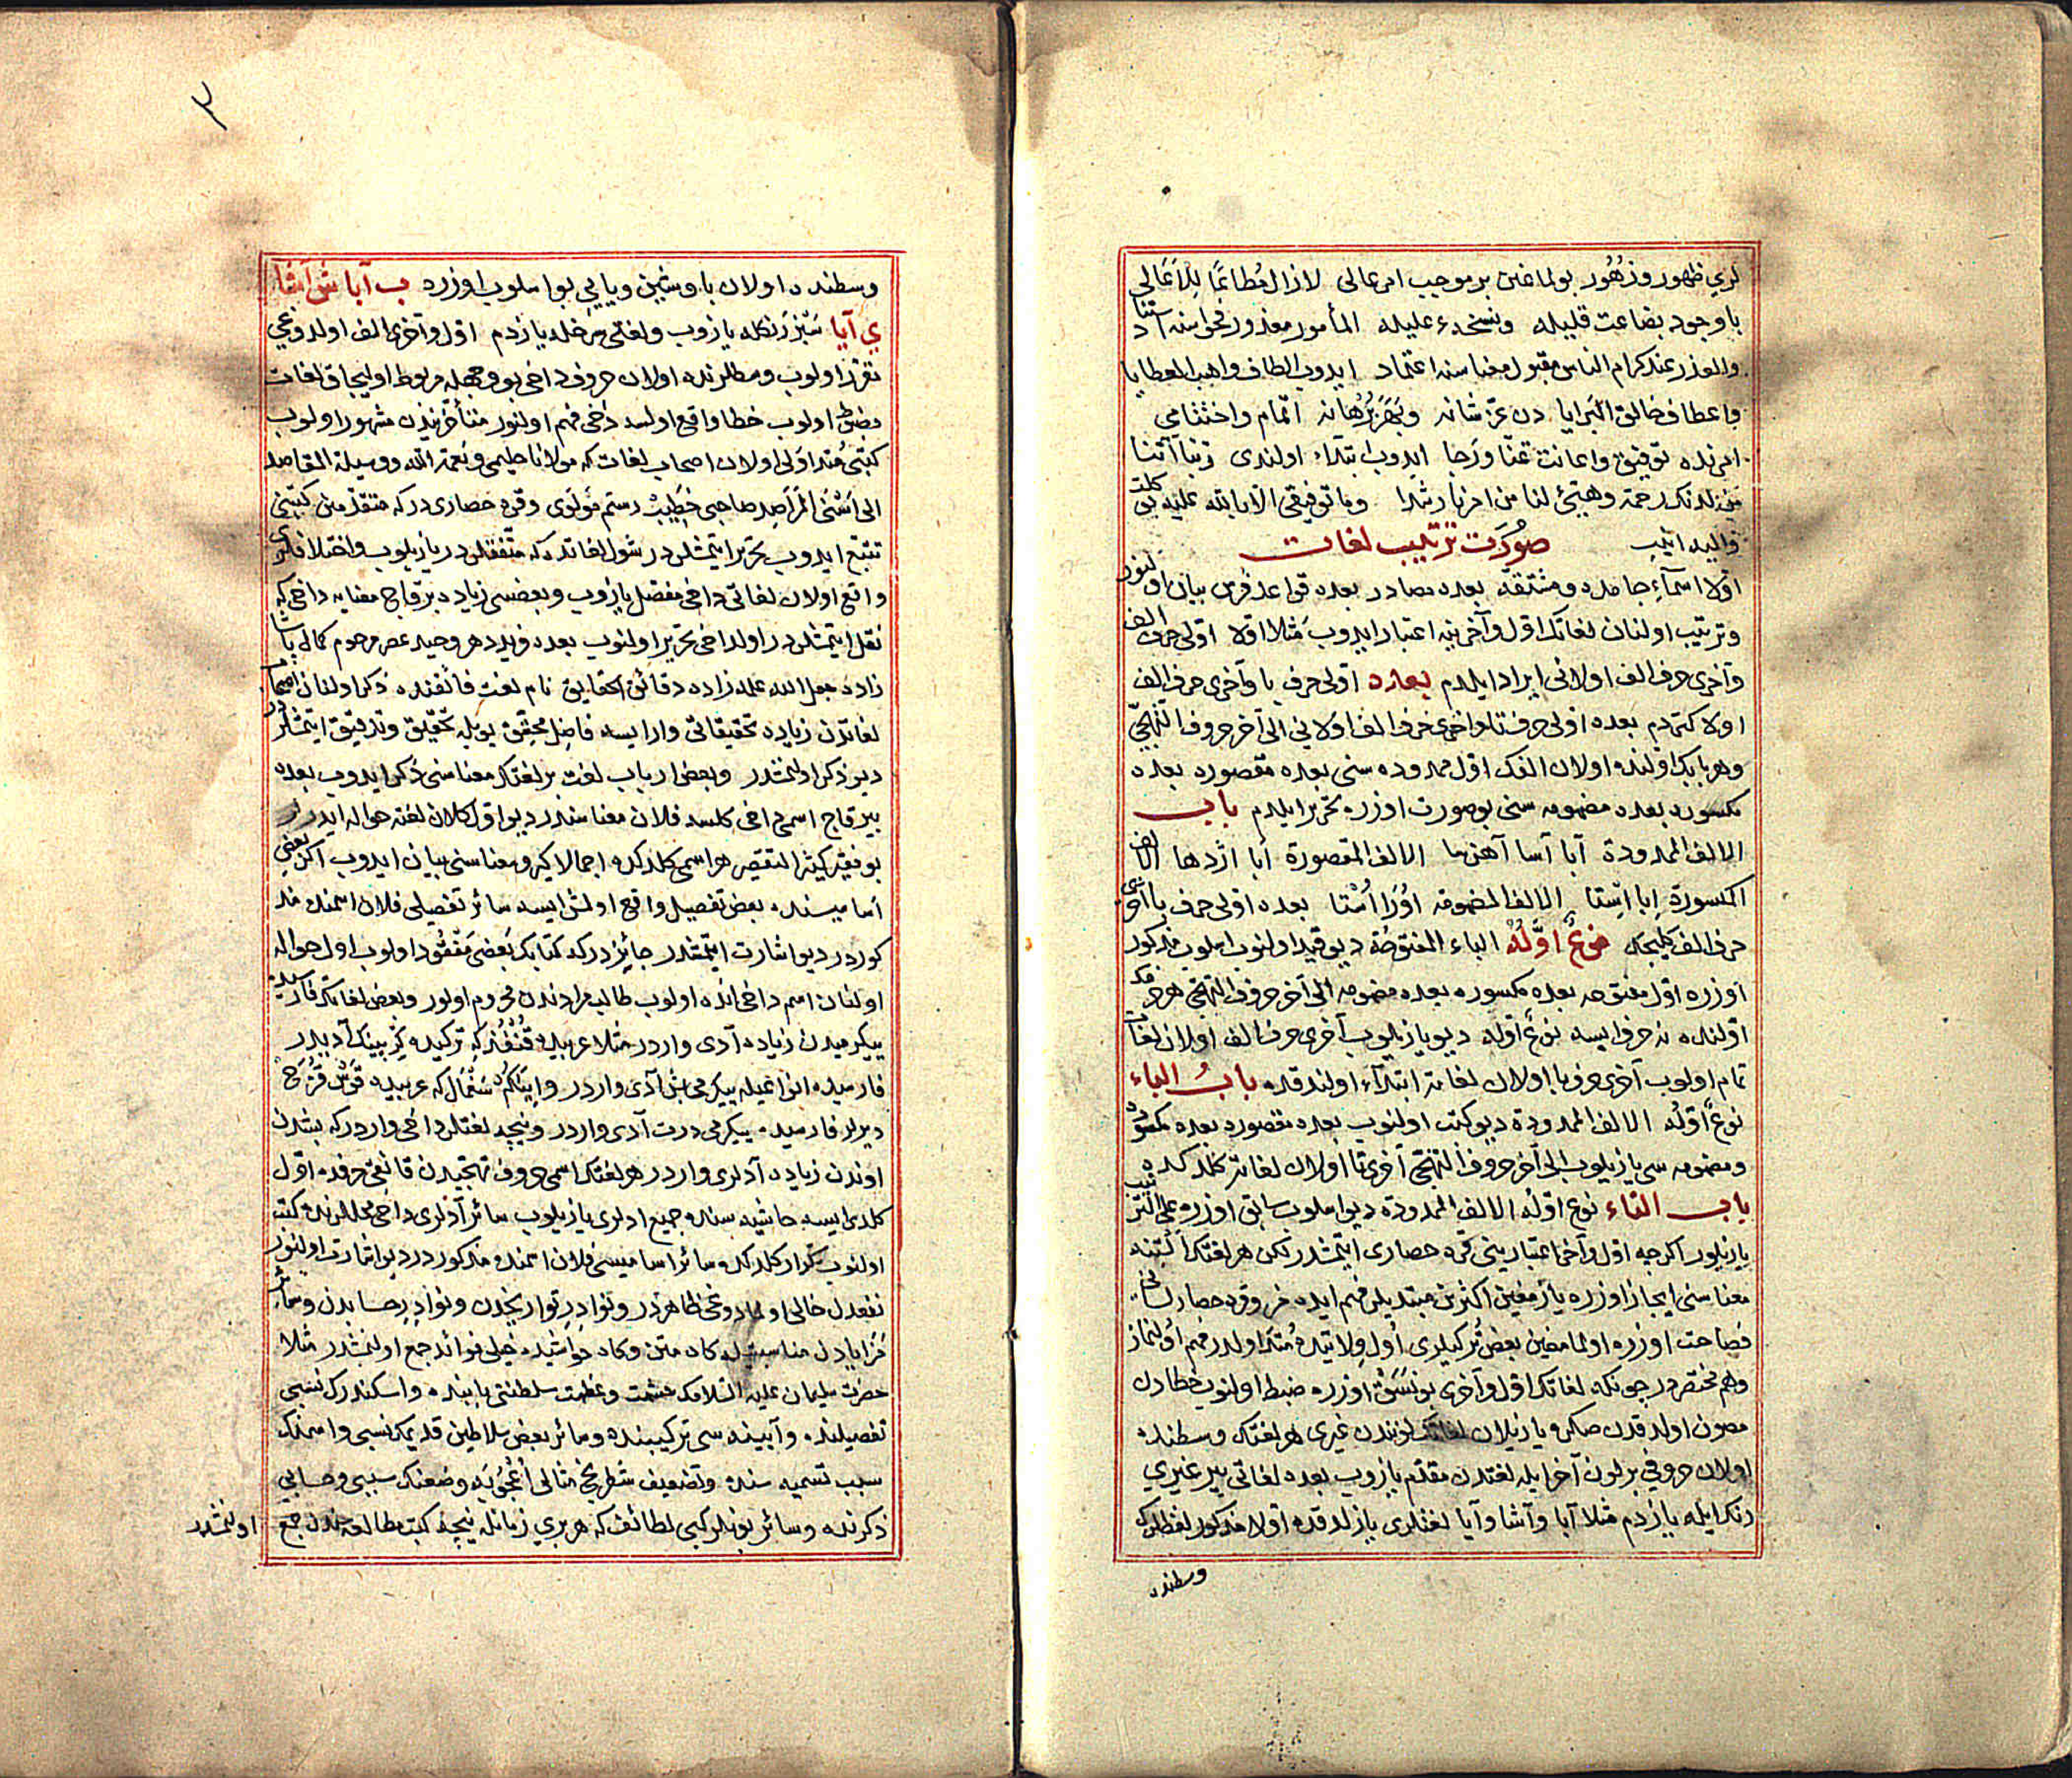 لري ظهور وزهور بولماغين بر موجب امر عالى لازال مطاعًا للاعالي
باوجود بضاعت قليله ونسخهء عليله المأمور معذور فحواسنه استناد
والعذر عند كرام الناس مقبول معناسنه اعتماد ايدوب الطاف واهب العطايا
واعطاف خالق البرايا دن عزّ شانه وبَهَرَ بُرْهانه اتمام واختتامى
امرنده توفيق واعانت تمنّا ورجا ايدوب ابتداء اولندى ربّنا آتنا
من لدنك رحمة وهيّئ لنا من امرنا رشدا وما توفيقى الّا بالله عليه توكلت
واليه انيب صُورَت تَرتيب لغات
اوّلا اسمآءِ جامده ومشتقّه بعده مصادر بعده قواعد فرس بيان اولنور
وترتيب اولنان لغاتك اوّل وآخرينه اعتبار ايدوب مثلا اوّلا اوّلى حرف الف
وآخرى حرف الف اولانى ايراد ايلدم بعده اوّلى حرف با وآخرى حرف الف
اولا كتردم بعده اوّلى حرف تا وآخرى حرف الف اولانى الى آخر حروف التهجّى
وهر بابك اولنده اولان الفك اوّل ممدوده سنى بعده مقصوره بعده
مكسوره بعده مضمومه سنى بو صورت اوزره تحرير ايلدم باب
الالف الممدودة آبا آسا آهن با الالف المقصورة اَبا اژدها الالف
المكسورة اِبا اِستا الالف المضمومه اُورَا اُسْتا بعده اوّلى حرف با آخرى
حرف الف كلنجه نوعٌ اوّلُهُ الباء المفتوحة ديو قيد اولنوب اسلوب مذكور
اوزره اوّل مفتوحه بعده مكسوره بعده مضمومه الى آخر حروف التهجّى هر حرفك
اوّلنده نه حرف ايسه نوعٌ اوّله ديو يازيلوب آخرى حرف الف اولان لغات
تمام اولوب آخرى حرف با اولان لغاته ابتدآء اولندقده بابُ الباء
نوعٌ اوّلُه الالف الممدودة ديو كتب اولنوب بعده مقصوره بعده مكسوره
ومضمومه سى يازيلوب الى آخر حروف التهجّى آخرى تا اولان لغاتر كلدكده
باب التاء نوع اوّلُه الالف الممدودة ديو اسلوب سابق اوزره على الترتيب
يازيلور اكرچه اوّل وآخر اعتبارينى قره حصارى ايتمشدر لكن هر لغتك
معناسنى ايجاز اوزره يازمغين اكثرين مبتديلر فهم ايده مز وقره حصار لسانى
فصاحت اوزره اولمامغين بعض تركيلرى اول ولايتده متداولدر فهم اولنماز
وهم مختصر در چونكه لغاتك اوّل وآخرى بو نَسَق اوزره ضبط اولنوب خطادن
مصون اولدقدن صكره يازيلان لغاتك لونندن غيرى هر لغتك وسطنده
اولان حروفى بر لون آخر ايله لغتدن مقدّم يازوب بعده لغاتى بير غيرى
رنك ايله يازدم مثلا آبا وآشا وآيا لغتلرى يازلدقده اوّلا مذكور لفظلرك
وسطنده
٣
وسطنده اولان با وشين ويايى بو اسلوب اوزره ب آبا ش آشا
ي آيا سَبْز رنكله يازوب ولغتى سرخله يازدم اوّل وآخرى الف اولدوغى
تقرّر اولوب وسطلرنده اولان حروف داخى بو وجهله مربوط اوليجاق لغات
مضبوط اولوب خطا واقع اولسه دخى فهم اولنور متأخّريندن مشهور اولوب
كتبى متداولى اولان اصحاب لغات كه مولانا حليمى ونعمة الله ووسيلة المقاصد
الى اَسْنَى المَراصِد صاحبى خطيب رستم مولوى وقره حصارى در كه متقدّمين كتبنى
تتبّع ايدوب تحرير ايتمشلر در شول لغاتده كه متّفقلر در يازيلوب واختلافلرى
واقع اولان لغاتى داخى مفصّل يازوب وبعضسى زياده بر قاچ معنايه داخى كه
نقل ايتمشلر در اولداخى تحرير اولنوب بعده فريد دهر وحيد عصر مرحوم كمال پاشا
زاده جعل الله علمه زاده دقائق الحقايق نام لغت فائقنده ذكر اولنان اصحاب
لغاتدن زياده تحقيقاتى وار ايسه فاضل محقّق بويله تحقيق وتدقيق ايتمشلر در
ديو ذكر اولنمشدر وبعض ارباب لغت بر لغتك معناسنى ذكر ايدوب بعده
بير قاچ اسمى داخى كلسه فلان معناسنه در ديو اوّل كلان لغته حواله ايدرلر
بو فقير كثير التقصير هر اسمى كلدكده اجمالا كيرو معناسنى بيان ايدوب اكر بعض
اساميسنده بعض تفصيل واقع اولمش ايسه سائر تفصيلى فلان اسمنده مذ
كور در ديو اشارت ايتمشدر جائز در كه كتابك بَعْضى مَفْقُود اولوب اول حواله
اولنان اسم داخى انده اولوب طالب مرادندن محروم اولور وبعض لغاتك فارسيده
ييكرميدن زياده آدى واردر مثلا عربيده قُنْفُذ كه تركيده كرپينك آديدر
فارسيده انواعيله ييكرمى بش آدى واردر وايتاكم شَمّال كه عربيده قَوْس قُزَح
ديرلر فارسيده ييكرمى درت آدى واردر ونيچه لغتلر داخى واردر كه بشدن
اوندن زياده آدلرى واردر هر لغتك اسمى حروف تهجّيدن قانغى حرفده اوّل
كلدى ايسه حاشيه سنده جميع ادلرى يازيلوب سائر آدلرى داخى محلّلرنده كتب
اولنوب تكرار كلدكده سائر اساميسى فلان اسمنده مذكور در ديو اشارت اولنور
نفعدن خالى اولمادوغى ظاهر در ونوادِرِ تواريخدن ونوادِر حسابدن وسائر
مزايادن مناسبتيله كاه متن وكاه حواشيده خيلى فوائد جمع اولنمشدر مثلا
حضرت سليمان عليه السّلامك حشمت وعظمت سلطنتى بابنده واسكندرك نسبى
تفصيلنده وآيينه سى تركيبنده وسائر بعض سلاطين قديمك نسبى واسمنك
سبب تسميه سنده وتضعيف شطرنج مثالى اُعْجُوبَه وضعنك سببى وحسابى
ذكرنده وسائر بونلر كبى لطائف كه هر برى زمانله نيچه كتب مطالعه سندن جمع
اولنمشدر